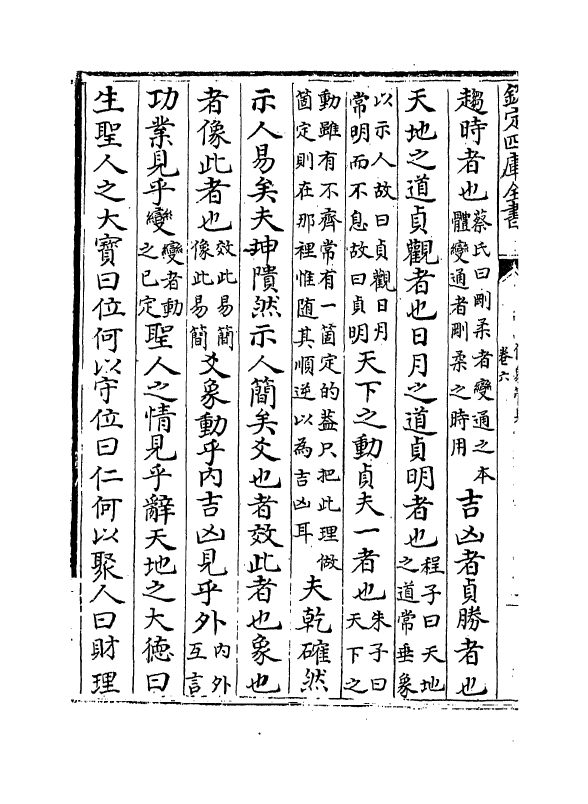 欽定四庫全書
卷六
趨時者也蔡氏曰剛柔者變通之本體變通者剛柔之時用吉凶者貞勝者也
天地之道貞觀者也日月之道貞明者也程子曰天地之道常垂象
以示人故曰貞觀日月常明而不息故曰貞明天下之動貞夫一者也朱子曰天下之
動雖有不齊常有一箇定的葢只把此理做箇定則在那裡惟隨其順逆以為吉凶耳夫乾確然
示人易矣夫坤隤然示人簡矣爻也者效此者也象也
者像此者也效此易簡像此易簡爻象動乎内吉凶見乎外内外互言
功業見乎變變者動之已定聖人之情見乎辭天地之大德曰
生聖人之大寶曰位何以守位曰仁何以聚人曰財理